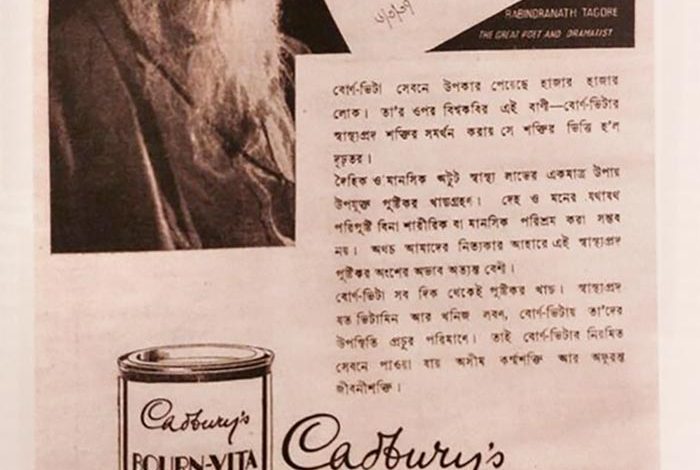 ৬/৩/৩৭
RABINDRANATH TAGORE
THE GREAT POET AND DRAMATIST
বোর্ণ-ভিটা সেবনে উপকার পেয়েছে হাজার হাজার
লোক। তা'র ওপর বিশ্বকবির এই বাণী—বোর্ণ-ভিটার
স্বাস্থ্যপ্রদ শক্তির সমর্থন করায় সে শক্তির ভিত্তি হ'ল
দৃঢ়তর।
দৈহিক ও মানসিক অটুট স্বাস্থ্য লাভের একমাত্র উপায়
উপযুক্ত পুষ্টিকর খাদ্যগ্রহণ। দেহ ও মনের যথাযথ
পরিপুষ্টী বিনা শারীরিক বা মানসিক পরিশ্রম করা সম্ভব
নয়। অথচ আমাদের নিত্যকার আহারে এই স্বাস্থ্যপ্রদ
পুষ্টীকর অংশের অভাব অত্যন্ত বেশী।
বোর্ণ-ভিটা সব দিক থেকেই পুষ্টীকর খাদ্য। স্বাস্থ্যপ্রদ
যত ভিটামিন আর খনিজ লবণ, বোর্ণ-ভিটায় তা'দের
উপস্থিতি প্রচুর পরিমাণে। তাই বোর্ণ-ভিটার নিয়মিত
সেবনে পাওয়া যায় অসীম কর্ম্মশক্তি আর অফুরন্ত
জীবনীশক্তি।
Cadbury's
BOURN-VITA
Cadbury's